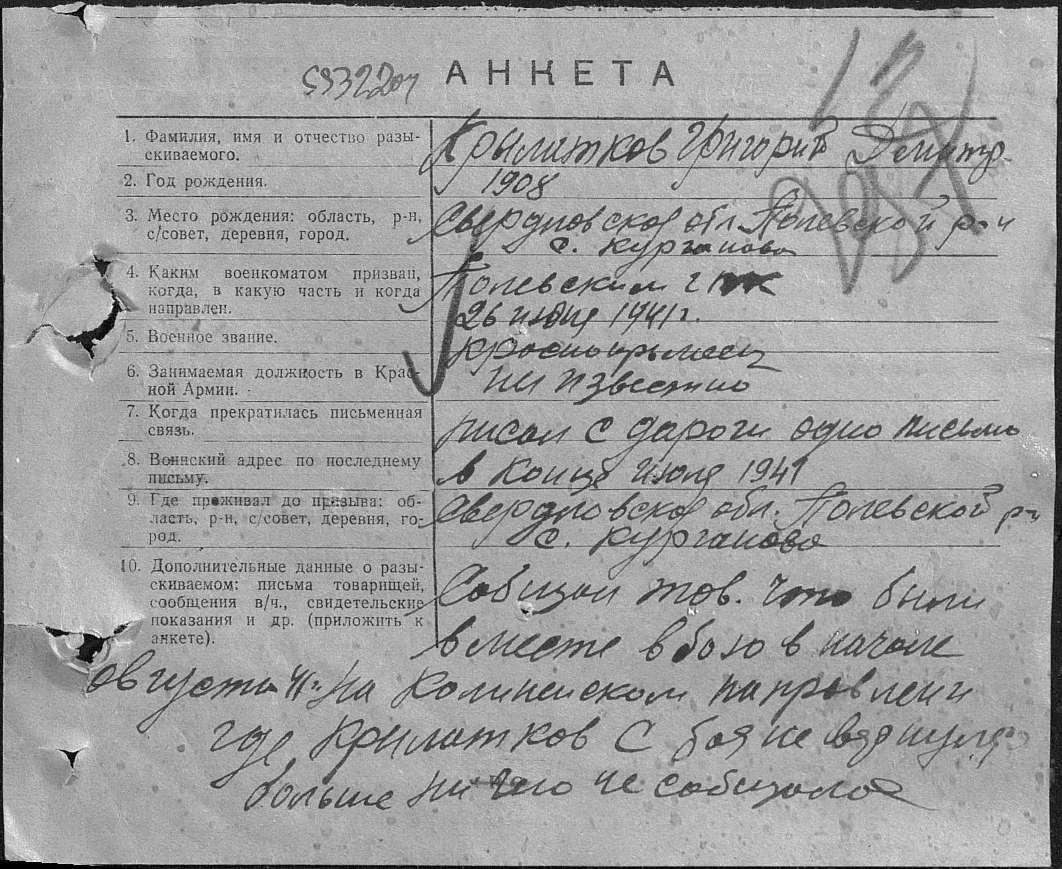 АНКЕТА
1. Фамилия, имя и отчество разы-
скиваемого.
Крылатков Григорий Дмитр.
2. Год рождения.
1908
3. Место рождения: область, р-н,
с/совет, деревня, город.
Свердловской обл. Полевской р-н
с. Курганова
4. Каким военкоматом призван,
когда, в какую часть и когда
направлен.
Полевским
26 июня 1941 г.
5. Военное звание.
красноармеец
6. Занимаемая должность в Крас-
ной Армии.
не известно
7. Когда прекратилась письменная
связь.
писал с дароги одно письмо
8. Воинский адрес по последнему
письму.
в конце июля 1941
9. Где проживал до призыва: об-
ласть, р-н, с/совет, деревня, го-
род.
Свердловской обл. Полевской р-н
с. Курганово
10. Дополнительные данные о разы-
скиваемом: письма товарищей,
сообщения в/ч., свидетельские
показания и др. (приложить к
анкете).
Сабщал тов. что были
вместе в бою в начале
августа 41 г. на Калиненском направлени
где Крилатков с боя не вернулся
больше ни чего не сабщалось